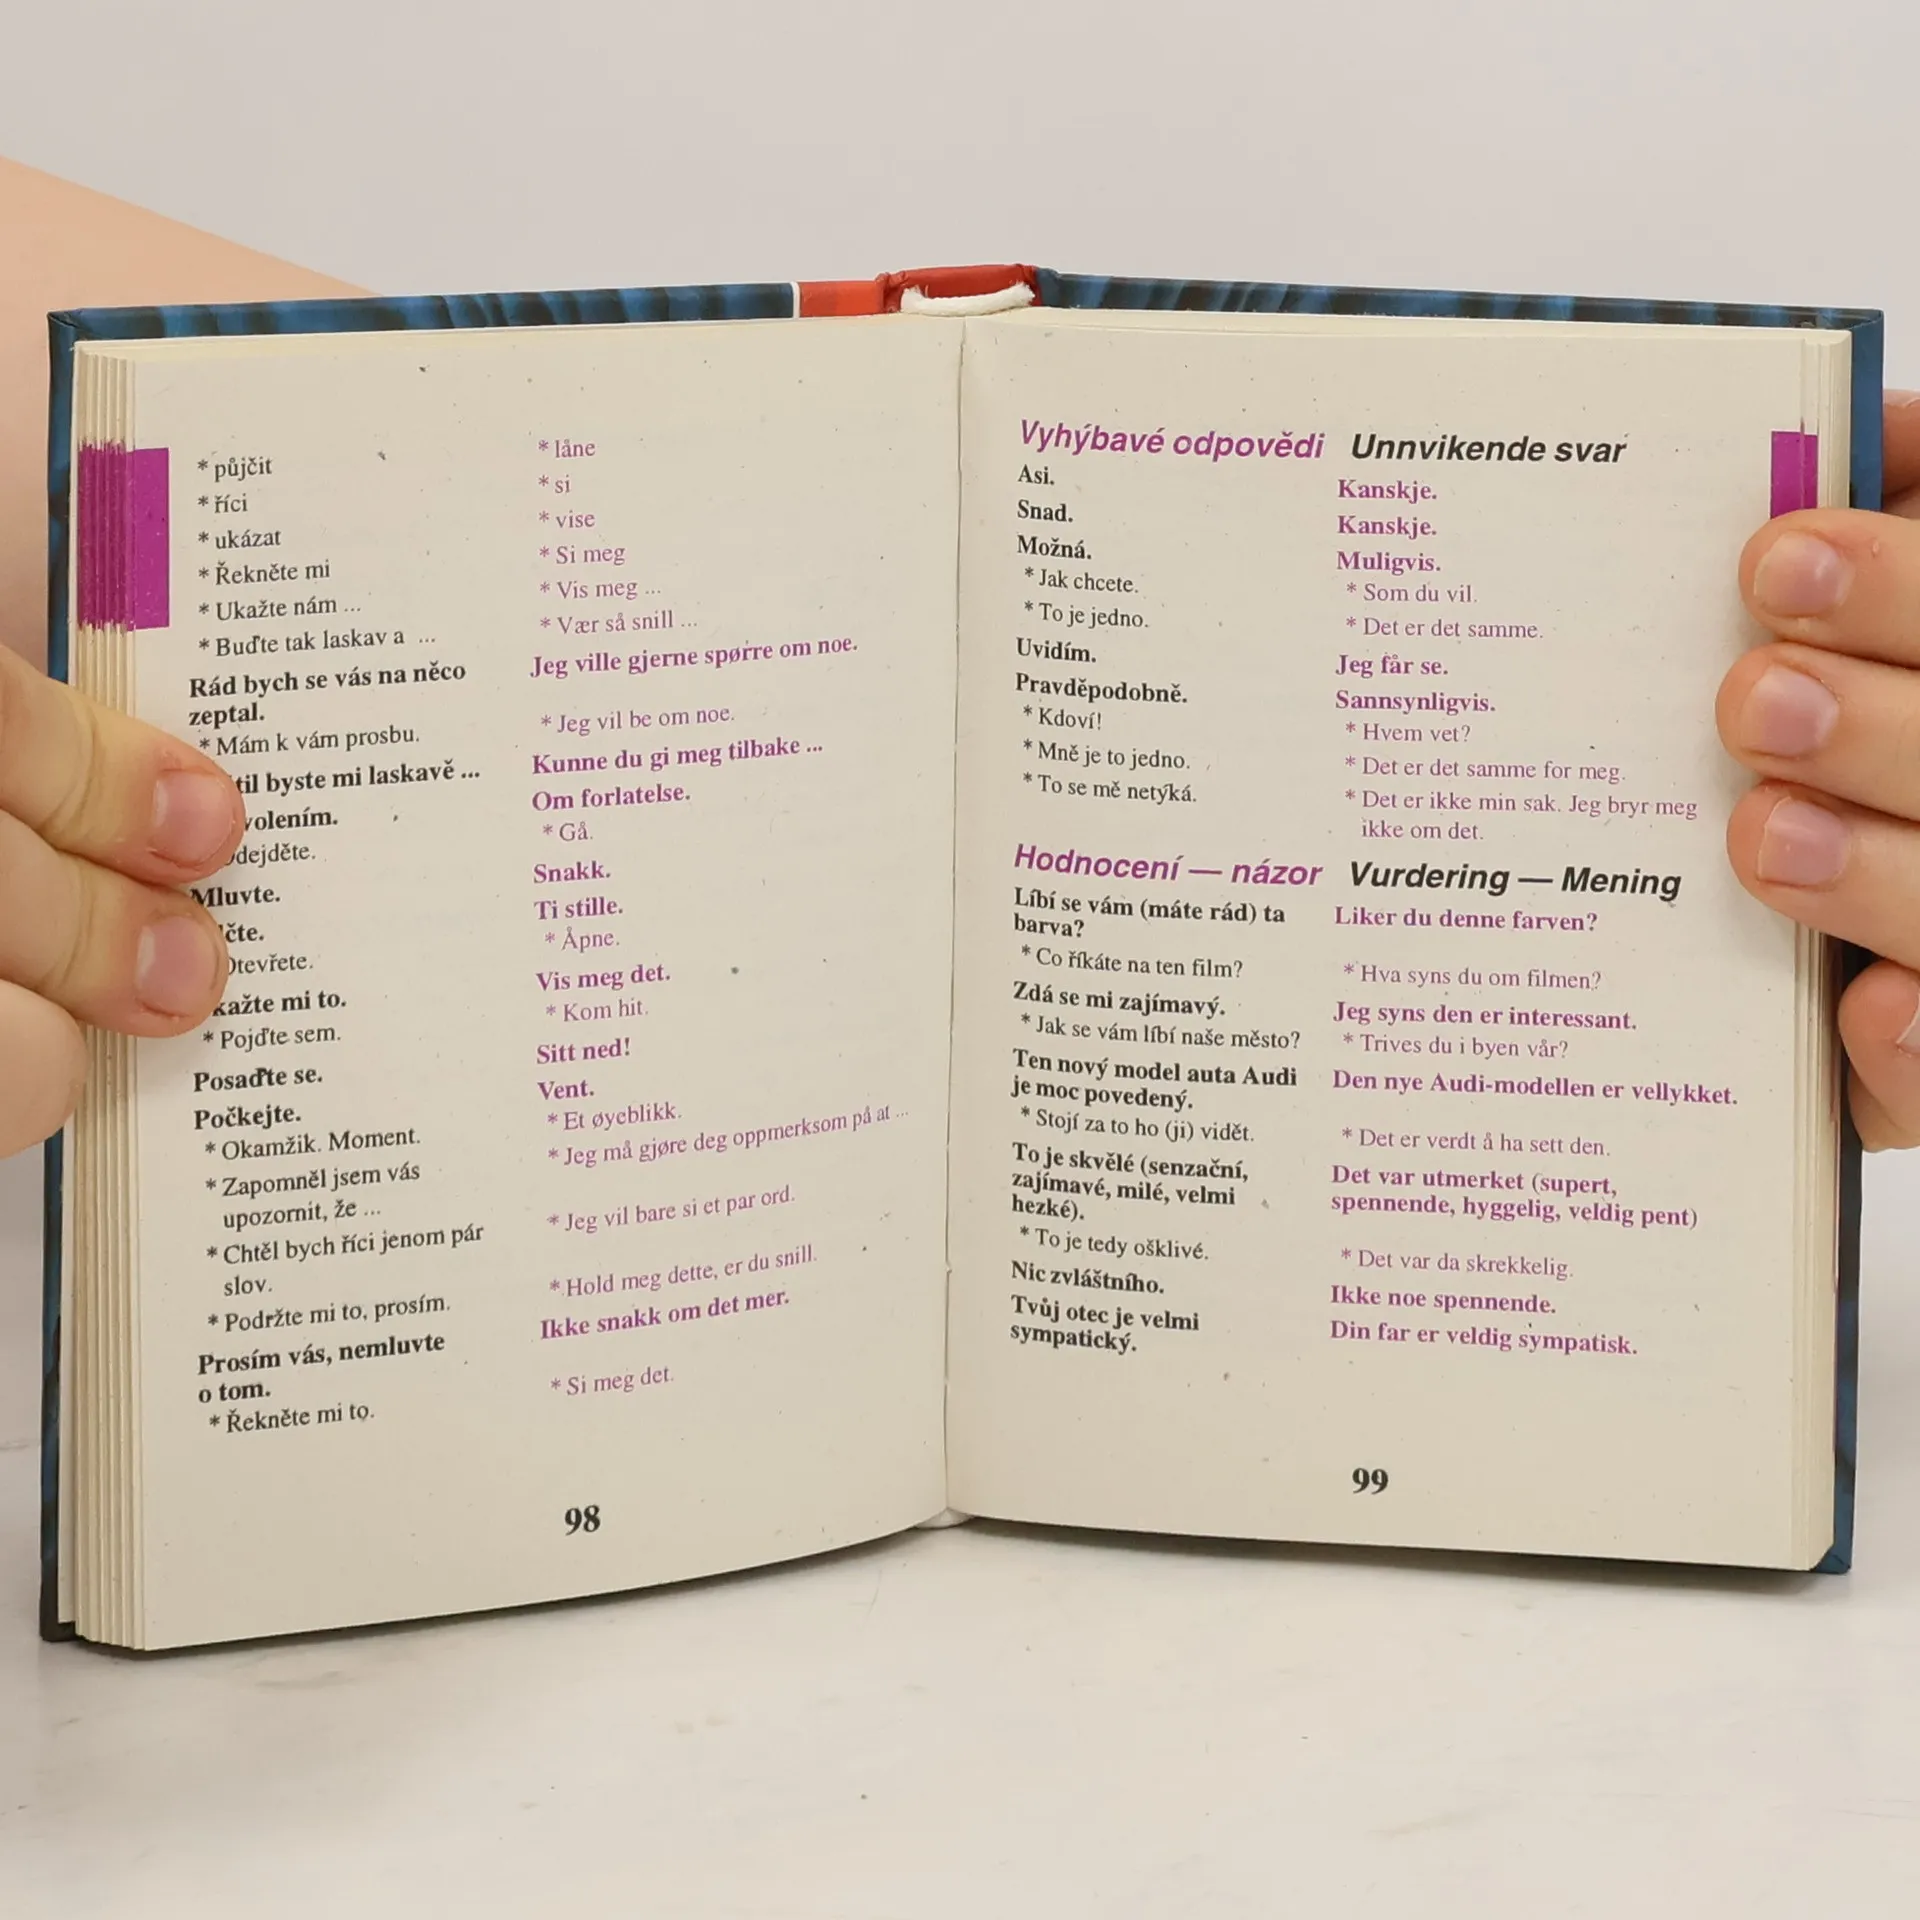 * půjčit
* říci
* ukázat
* Řekněte mi
* Ukažte nám ...
* Buďte tak laskav a ...
Rád bych se vás na něco
zeptal.
* Mám k vám prosbu.
byste mi laskavě ...
* Pojďte sem.
Mluvte.
mi to.
Posaďte se.
Počkejte.
* Okamžik. Moment.
* Zapomněl jsem vás
upozornit, že ...
* Chtěl bych říci jenom pár
slov.
* Podržte mi to, prosím.
Prosím vás, nemluvte
o tom.
* Řekněte mi to.
* låne
* si
* vise
* Si meg
* Vis meg ...
* Vær så snill ...
Jeg ville gjerne spørre om noe.
* Jeg vil be om noe.
Kunne du gi meg tilbake ...
Om forlatelse.
* Gå.
Snakk.
Ti stille.
* Åpne.
Vis meg det.
* Kom hit.
Sitt ned!
Vent.
* Et øyeblikk.
* Jeg må gjøre deg oppmerksom på at ...
* Jeg vil bare si et par ord.
* Hold meg dette, er du snill.
Ikke snakk om det mer.
* Si meg det.
98
Vyhýbavé odpovědi Unnvikende svar
Asi.
Snad.
Možná.
* Jak chcete.
* To je jedno.
Uvidím.
Pravděpodobně.
* Kdoví!
* Mně je to jedno.
* To se mě netýká.
Kanskje.
Kanskje.
Muligvis.
* Som du vil.
* Det er det samme.
Jeg får se.
Sannsynligvis.
* Hvem vet?
* Det er det samme for meg.
* Det er ikke min sak. Jeg bryr meg
ikke om det.
Hodnocení — názor Vurdering — Mening
Líbí se vám (máte rád) ta
barva?
* Co říkáte na ten film?
Zdá se mi zajímavý.
* Jak se vám líbí naše město?
Ten nový model auta Audi
je moc povedený.
* Stojí za to ho (ji) vidět.
To je skvělé (senzační,
zajímavé, milé, velmi
hezké).
* To je tedy ošklivé.
Nic zvláštního.
Tvůj otec je velmi
sympatický.
Liker du denne farven?
* Hva syns du om filmen?
Jeg syns den er interessant.
* Trives du i byen vår?
Den nye Audi-modellen er vellykket.
* Det er verdt å ha sett den.
Det var utmerket (supert,
spennende, hyggelig, veldig pent)
* Det var da skrekkelig.
Ikke noe spennende.
Din far er veldig sympatisk.
99